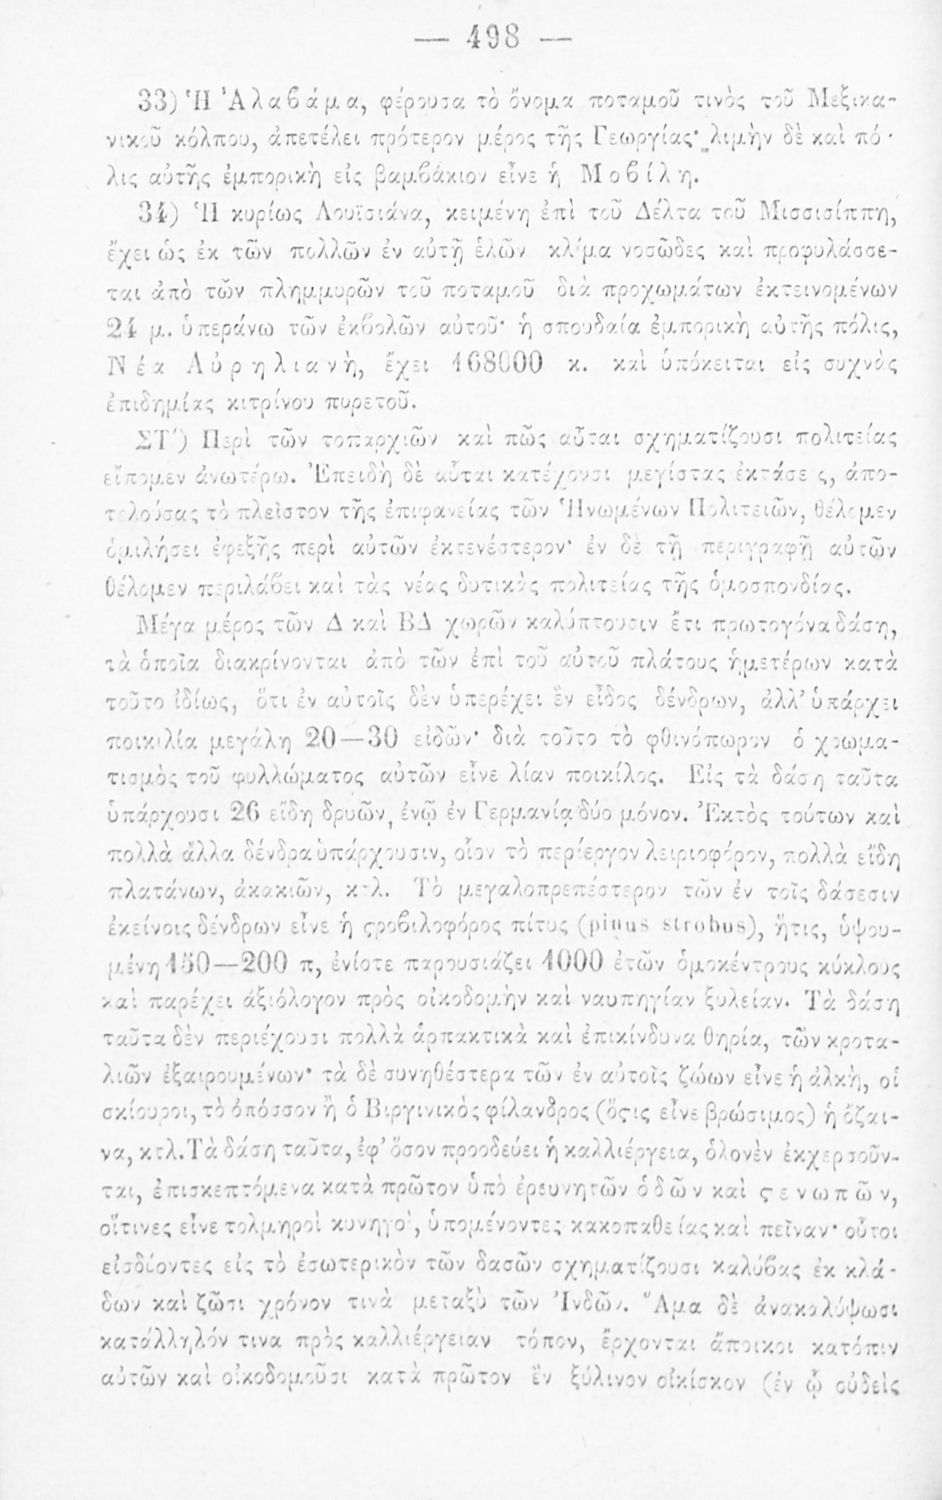 — 498 —
33) Ἡ Ἀλαβάμα, φέρουσα τὸ ὄνομα ποταμοῦ τινὸς τοῦ Μεξικα-
νικοῦ κόλπου, ἀπετέλει πρότερον μέρος τῆς Γεωργίας· λιμὴν δὲ καὶ πό-
λις αὐτῆς ἐμπορικὴ εἰς βαμβάκιον εἶνε ἡ Μοβίλη.
34) Ἡ κυρίως Λουϊσιάνα, κειμένη ἐπὶ τοῦ Δέλτα τοῦ Μισσισίππη,
ἔχει ὡς ἐκ τῶν πολλῶν ἐν αὐτῇ ἑλῶν κλίμα νοσῶδες καὶ προφυλάσσε-
ται ἀπὸ τῶν πλημμυρῶν τοῦ ποταμοῦ διὰ προχωμάτων ἐκτεινομένων
24 μ. ὑπεράνω τῶν ἐκβολῶν αὐτοῦ· ἡ σπουδαία ἐμπορικὴ αὐτῆς πόλις,
Νέα Αὐρηλιανὴ, ἔχει 168000 κ. καὶ ὑπόκειται εἰς συχνὰς
ἐπιδημίας κιτρίνου πυρετοῦ.
ΣΤ´) Περὶ τῶν τοπαρχιῶν καὶ πῶς αὗται σχηματίζουσι πολιτείας
εἴπομεν ἀνωτέρω. Ἐπειδὴ δὲ αὗται κατέχουσι μεγίστας ἐκτάσεις, ἀπο-
τελούσας τὸ πλεῖστον τῆς ἐπιφανείας τῶν Ἡνωμένων Πολιτειῶν, θέλομεν
ὁμιλήσει ἐφεξῆς περὶ αὐτῶν ἐκτενέστερον· ἐν δὲ τῇ περιγραφῇ αὐτῶν
θέλομεν περιλάβει καὶ τὰς νέας δυτικὰς πολιτείας τῆς ὁμοσπονδίας.
Μέγα μέρος τῶν Δ καὶ ΒΔ χωρῶν καλύπτουσιν ἔτι πρωτογόνα δάση,
τὰ ὁποῖα διακρίνονται ἀπὸ τῶν ἐπὶ τοῦ αὐτοῦ πλάτους ἡμετέρων κατὰ
τοῦτο ἰδίως, ὅτι ἐν αὐτοῖς δὲν ὑπερέχει ἓν εἶδος δένδρων, ἀλλ' ὑπάρχει
ποικιλία μεγάλη 20—30 εἰδῶν· διὰ τοῦτο τὸ φθινόπωρον ὁ χρωμα-
τισμὸς τοῦ φυλλώματος αὐτῶν εἶνε λίαν ποικίλος. Εἰς τὰ δάση ταῦτα
ὑπάρχουσι 26 εἴδη δρυῶν, ἐνῷ ἐν Γερμανίᾳ δύο μόνον. Ἐκτὸς τούτων καὶ
πολλὰ ἄλλα δένδρα ὑπάρχουσιν, οἷον τὸ περίεργον λειριοφόρον, πολλὰ εἴδη
πλατάνων, ἀκακιῶν, κτλ. Τὸ μεγαλοπρεπέστερον τῶν ἐν τοῖς δάσεσιν
ἐκείνοις δένδρων εἶνε ἡ ϛροβιλοφόρος πίτυς (pinus strobus), ἥτις, ὑψου-
μένη 150—200 π, ἐνίοτε παρουσιάζει 1000 ἐτῶν ὁμοκέντρους κύκλους
καὶ παρέχει ἀξιόλογον πρὸς οἰκοδομὴν καὶ ναυπηγίαν ξυλείαν. Τὰ δάση
ταῦτα δὲν περιέχουσι πολλὰ ἁρπακτικὰ καὶ ἐπικίνδυνα θηρία, τῶν κροτα-
λιῶν ἐξαιρουμένων· τὰ δὲ συνηθέστερα τῶν ἐν αὐτοῖς ζώων εἶνε ἡ ἀλκὴ, οἱ
σκίουροι, τὸ ὀπόσσον ἢ ὁ Βιργινικὸς φίλανδρος (ὅϛις εἶνε βρώσιμος) ἡ ὄζαι-
να, κτλ. Τὰ δάση ταῦτα, ἐφ' ὅσον προοδεύει ἡ καλλιέργεια, ὁλονὲν ἐκχερσοῦν-
ται, ἐπισκεπτόμενα κατὰ πρῶτον ὑπὸ ἐρευνητῶν ὁδῶν καὶ ϛενωπῶν,
οἵτινες εἶνε τολμηροὶ κυνηγοὶ, ὑπομένοντες κακοπαθείας καὶ πεῖναν· οὗτοι
εἰσδύοντες εἰς τὸ ἐσωτερικὸν τῶν δασῶν σχηματίζουσι καλύβας ἐκ κλά-
δων καὶ ζῶσι χρόνον τινὰ μεταξὺ τῶν Ἰνδῶν. Ἅμα δὲ ἀνακαλύψωσι
κατάλληλόν τινα πρὸς καλλιέργειαν τόπον, ἔρχονται ἄποικοι κατόπιν
αὐτῶν καὶ οἰκοδομοῦσι κατὰ πρῶτον ἓν ξύλινον οἰκίσκον (ἐν ᾧ οὐδεὶς